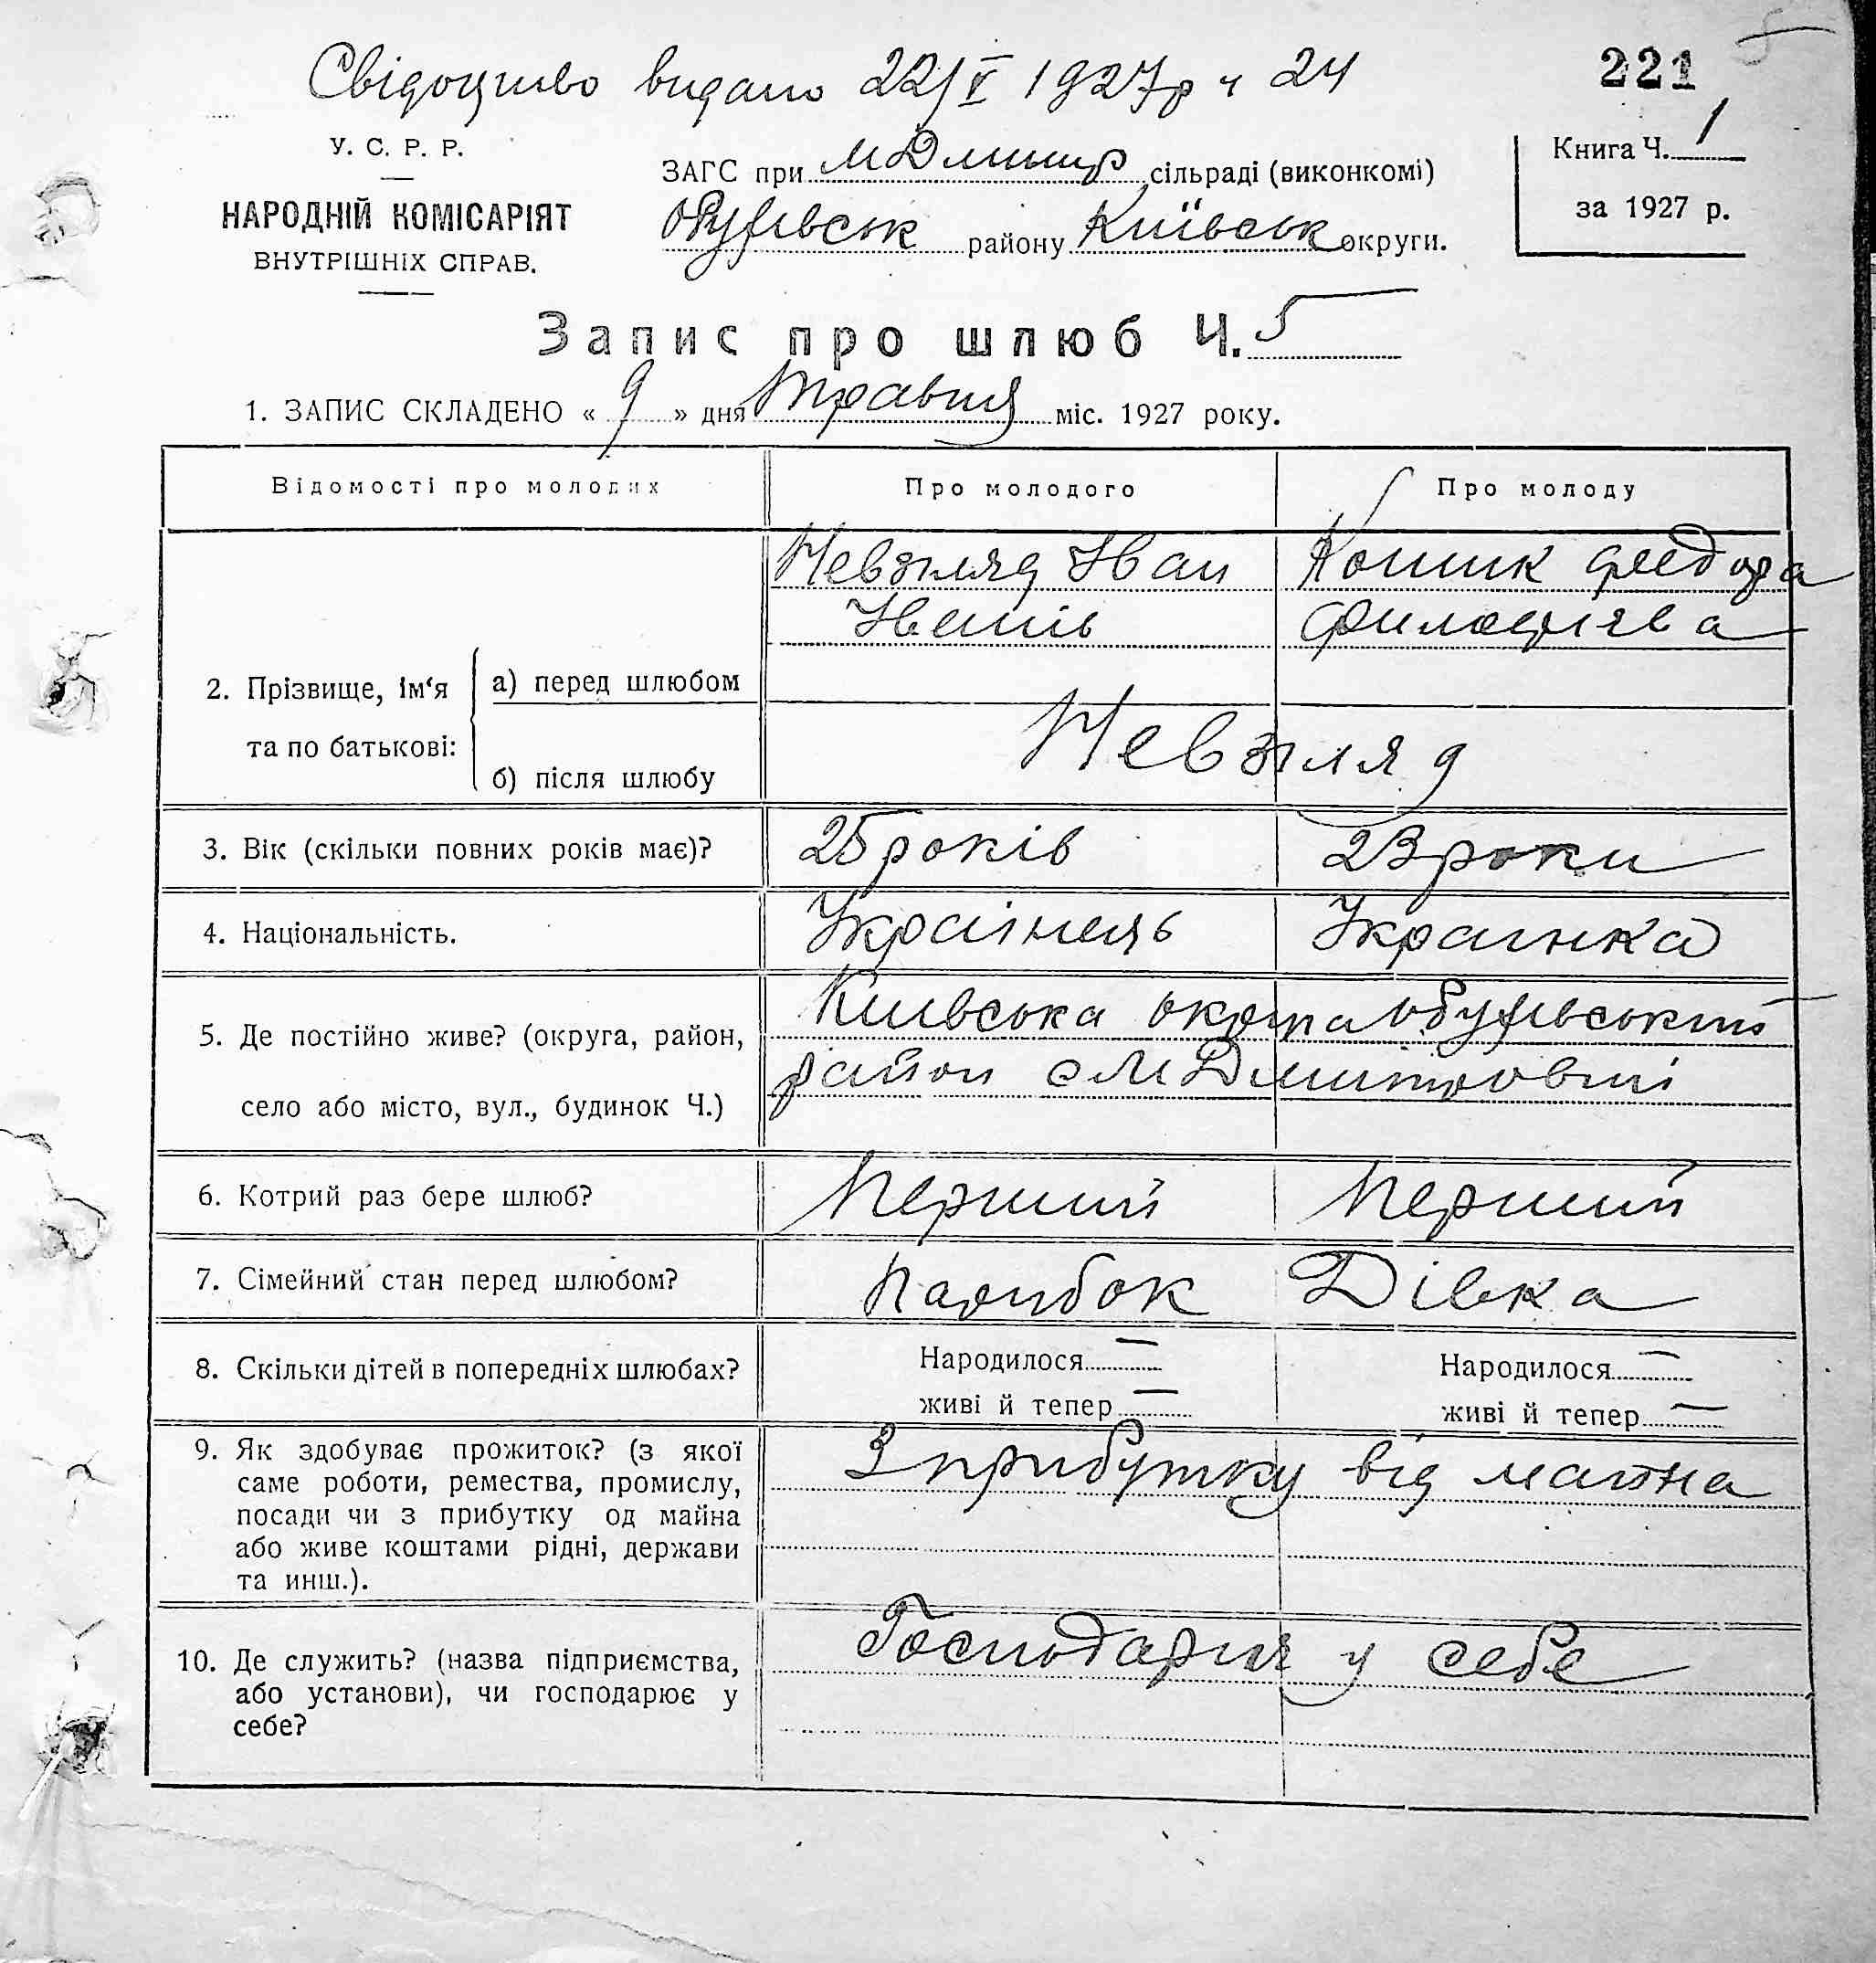 Свідоцтво видано 22/V 1927р ч 24
221
У. С. Р. Р.
НАРОДНІЙ КОМІСАРІЯТ
ВНУТРІШНІХ СПРАВ.
ЗАГС при МДмитр сільраді (виконкомі)
Обухівськ району Київськ округи.
Книга Ч. 1
за 1927 р.
Запис про шлюб Ч. 5
1. ЗАПИС СКЛАДЕНО « 9 » дня травня міс. 1927 року.
Відомості про молодих
Про молодого
Про молоду
2. Прізвище, ім‘я та по батькові:
а) перед шлюбом
Невзгляд Іван
Іванів
Кошик Федора
б) після шлюбу
Невзгляд
3. Вік (скільки повних років має)?
25 років
23 роки
4. Національність.
Українець
Украинка
5. Де постійно живе? (округа, район,
село або місто, вул., будинок Ч.)
Київська округа Обухівський
район с М Дмитровці
6. Котрий раз бере шлюб?
Перший
Перший
7. Сімейний стан перед шлюбом?
Парубок
Дівка
8. Скільки дітей в попередніх шлюбах?
Народилося —
живі й тепер —
Народилося —
живі й тепер —
9. Як здобуває прожиток? (з якої
саме роботи, ремества, промислу,
посади чи з прибутку од майна
або живе коштами рідні, держави
та инш.).
З прибутку від майна
10. Де служить? (назва підприємства,
або установи), чи господарює у
себе?
у себе